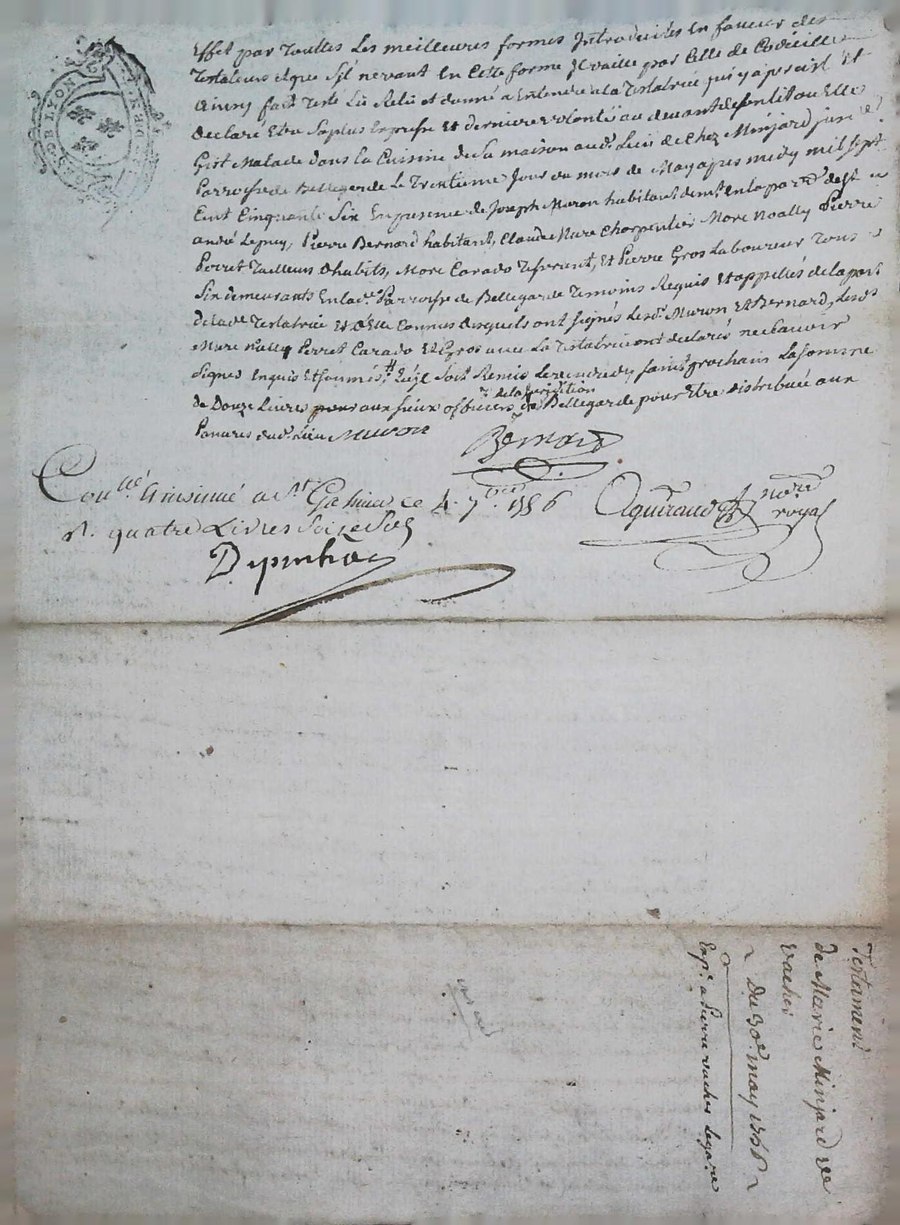 Effet par Touttes Les meilleures formes Introduittes En faveur des
Testateurs et que S'il ne vaut En Cette forme Il vaille par Celle de Codicille
Ainsy fait Testé Lu Relu et donné a Entendre a la Testatrice qui y a persisté Et
declaré Etre Sa plus Expresse Et derniere volonté au devant de son lit ou Elle
Gist Malade dans la Cuisine de Sa maison aud. Lieu de Chez Minjard susd.
Parroisse de Bellegarde Le Trentieme Jour du mois de May apres midy mil Sept
Cent Cinquante Six En presence de Joseph Muron habitant En la par de St
André Lepuy, Pierre Bernard habitant, Claude Mure Charpentier More Noally Pierre
Perret Tailleur d'habits, More Carado Tisserant, Et Pierre Gros Laboureur Tous
Six demeurants En lad. Parroisse de Bellegarde Temoins Requis et appellés de la part
de lad. Testatrice Et d'Elle Connus desquels ont Signés Lesd. Muron Et Bernard, Lesds
Mure Noally Perret Carado Et Gros avec La Testatrice ont declarés ne Scavoir
Signer Enquis Et Sommés, Soit Remis Le vendredy saint prochain La Somme
de la Juridiction
de Douze Livres aux Sieurs officiers de Bellegarde pour Etre distribuée aux
Pauvres dud. Lieu Muron
Bernard
Conllé Insinué a St Galmier ce 4. 7bre 1756
R. quatre Livres Seize Sols
nore
royal
Testament
de Marie Minjard ve
vacher
Du 30e may 1756
Expé. a Pierre vacher Legare